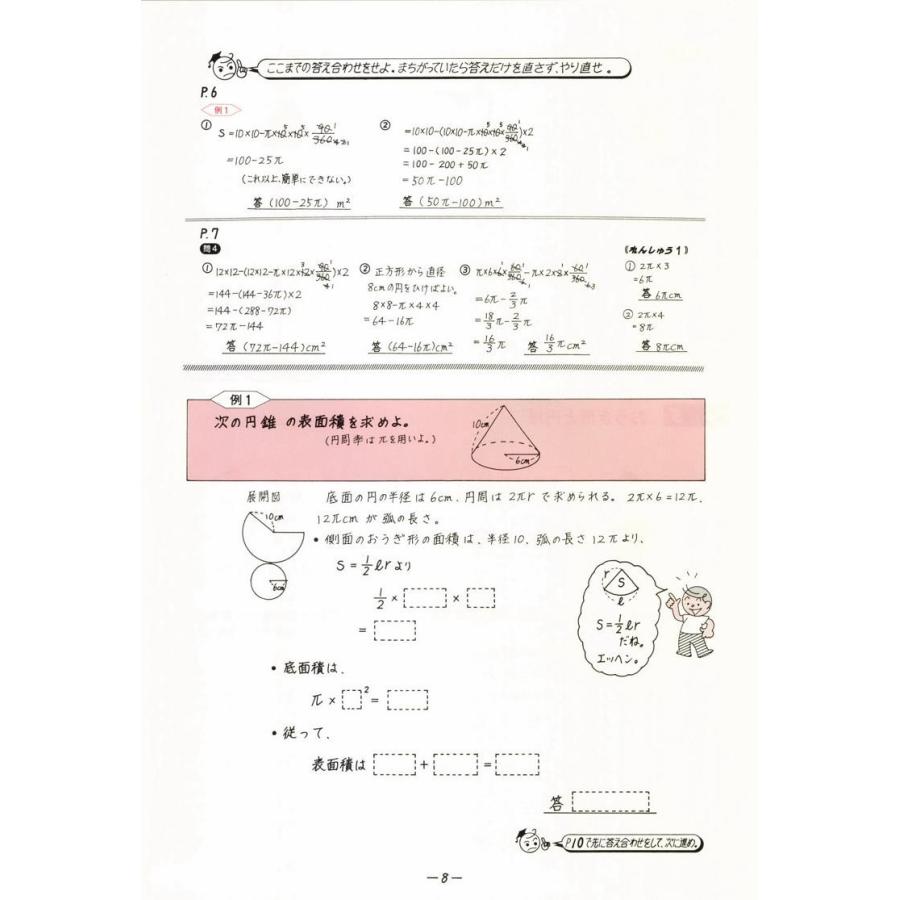 ここまでの答え合わせをせよ。まちがっていたら答えだけを直さず、やり直せ。
P.6
例1
① S=10×10-π×10×10×90/360
=100-25π
(これ以上、簡単にできない。)
答 (100-25π) m²
② =10×10-(10×10-π×10×10×90/360)×2
=100-(100-25π)×2
=100-200+50π
=50π-100
答 (50π-100) m²
P.7
問4
① 12×12-(12×12-π×12×12×90/360)×2
=144-(144-36π)×2
=144-(288-72π)
=72π-144
答 (72π-144)cm²
② 正方形から直径
8cmの円をひけばよい。
8×8-π×4×4
=64-16π
答 (64-16π)cm²
③ π×6×6×60/360-π×2×2×60/360
=6π-2/3π
=18/3π-2/3π
=16/3π 答 16/3πcm²
《れんしゅう1》
① 2π×3
=6π
答 6πcm
② 2π×4
=8π
答 8πcm
例1
次の円錐の表面積を求めよ。
(円周率はπを用いよ。)
10cm
6cm
展開図
10cm
6cm
底面の円の半径は6cm、円周は2πrで求められる。2π×6=12π、
12πcmが弧の長さ。
•側面のおうぎ形の面積は、半径10、弧の長さ12πより、
S=1/2ℓrより
1/2× ×
=
•底面積は、
π× ²=
•従って、
表面積は + =
答
r S
ℓ
S=1/2ℓr
だね。
エッヘン。
P10で先に答え合わせをして、次に進め。
—8—